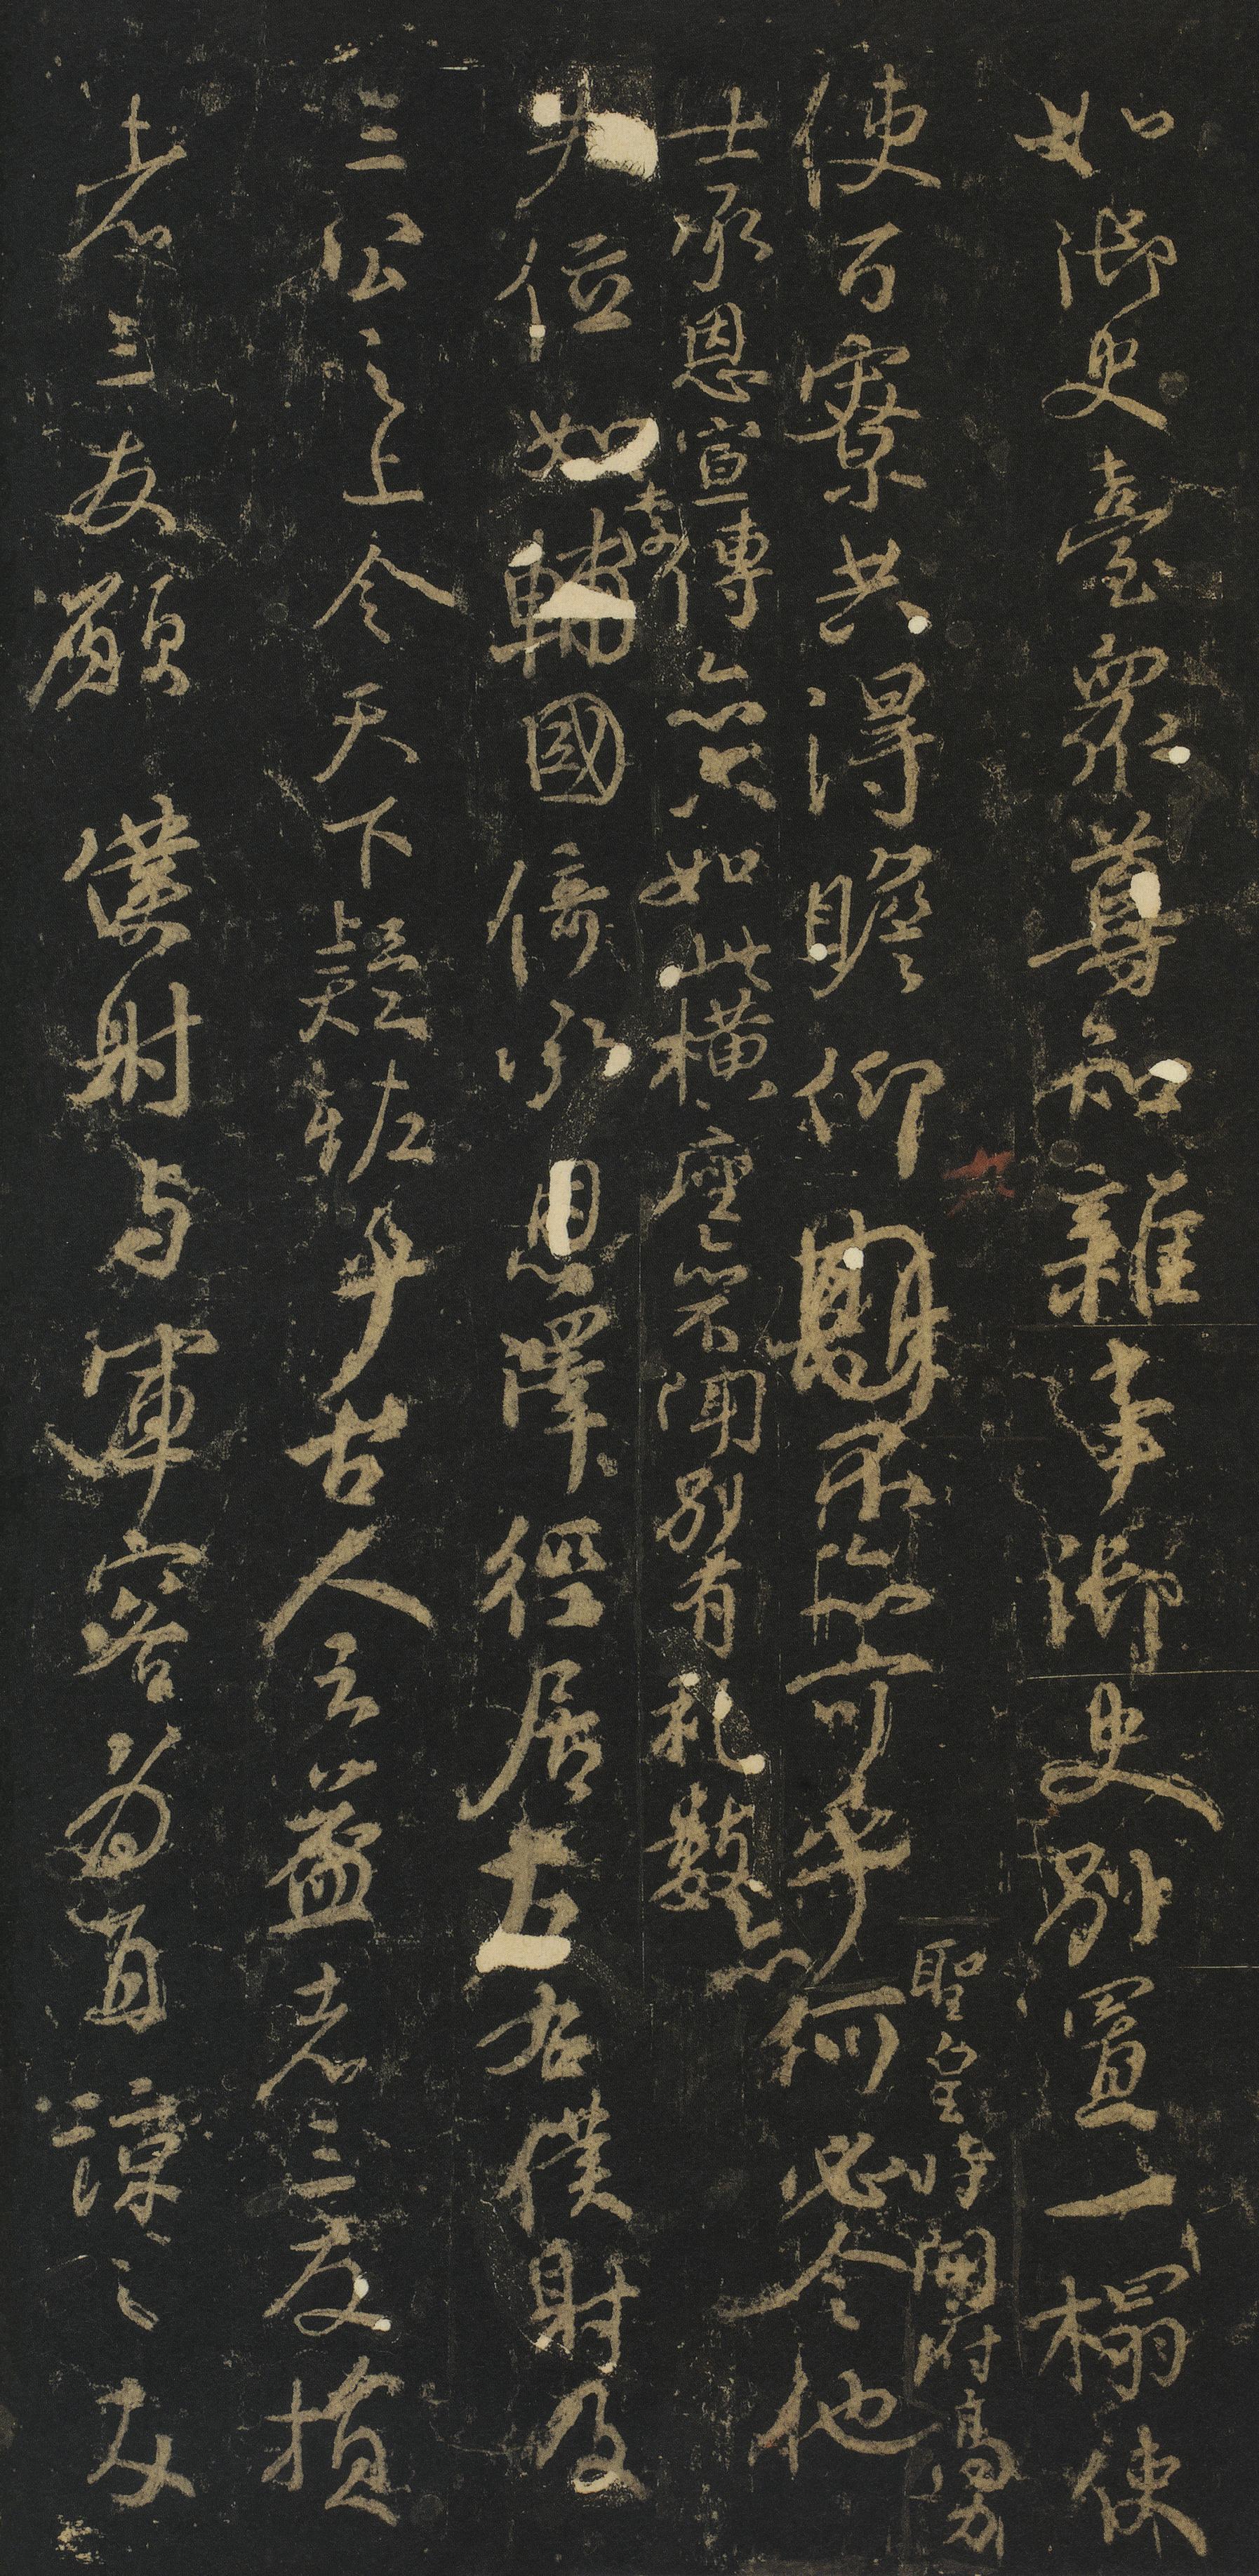 如御史臺眾尊知雜事御史別置一榻使
使百寮共得瞻仰不亦可乎
聖皇時開府高力
士承恩宣傳亦只如此橫座亦不聞別有礼數亦
何必令他
失位如李輔國倚承恩澤徑居左右僕射及
三公之上令天下疑恠乎古人云益者三友損
者三友願僕射与軍容為直諒之友